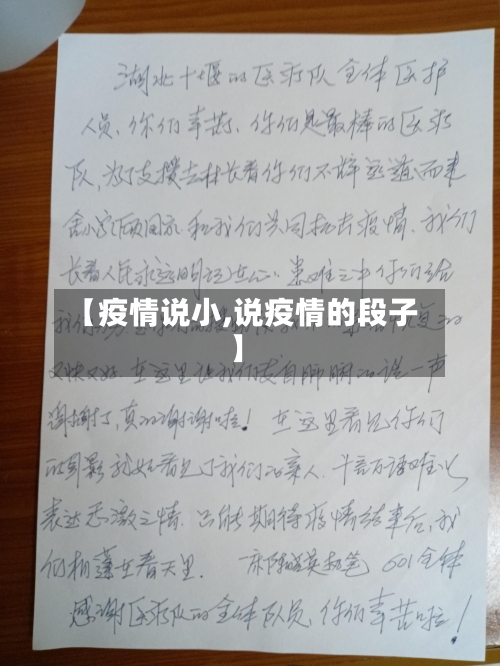 湖北十堰的医疗队全体医护
人员、你们辛苦、你们是最棒的医疗
队,为了支援吉林长春你们不辞远道而来
舍小家顾国家和我们共同抗击疫情.我们
长春人民永远明记在心.患难之中你们给
【疫情说小,说疫情的段子
】
又快又好.在这里让我们发自肺腑的说一声
谢谢了,真的谢谢啦!在这里看见你们
的身影就好看见了我们的亲人.千言万语难以
表达感激之情.只能期待疫情结束后,我
们相逢在春天里. 601全体
感谢医疗队的全体队员、你们辛苦啦!